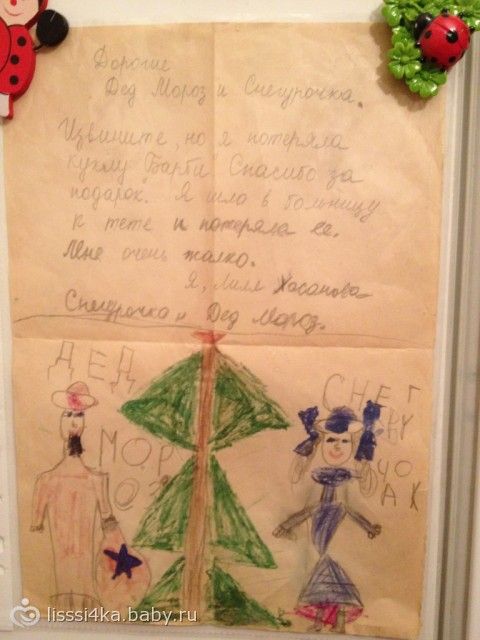 Дорогие
Дед Мороз и Снегурочка.
Извините, но я потеряла
куклу "Барби" Спасибо за
подарок. Я шла в больницу
к тете и потеряла ее.
Мне очень жалко.
Я, Лиля Хасанова
Снегурочка и Дед Мороз.
ДЕД
МОР
ОЗ
СНЕГ
lisssi4ka.baby.ru